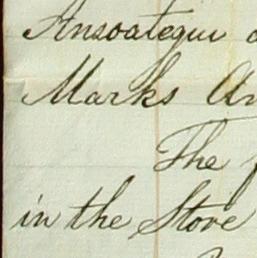 Ansoategui
Marks
The
in the Store